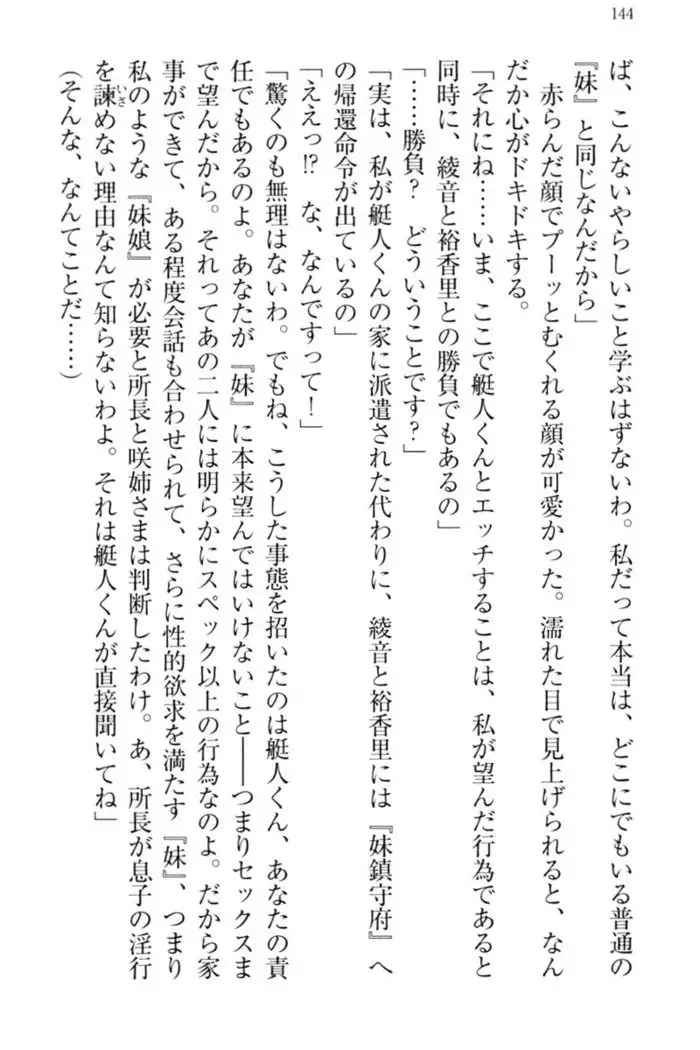 144
ば、こんないやらしいこと学ぶはずないわ。私だって本当は、どこにでもいる普通の
『妹』と同じなんだから」
　赤らんだ顔でプーッとむくれる顔が可愛かった。濡れた目で見上げられると、なん
だか心がドキドキする。
「それにね……いま、ここで艇人くんとエッチすることは、私が望んだ行為であると
同時に、綾音と裕香里との勝負でもあるの」
「……勝負？　どういうことです？」
「実は、私が艇人くんの家に派遣された代わりに、綾音と裕香里には『妹鎮守府』へ
の帰還命令が出ているの」
「ええっ!?　な、なんですって！」
「驚くのも無理はないわ。でもね、こうした事態を招いたのは艇人くん、あなたの責
任でもあるのよ。あなたが『妹』に本来望んではいけないこと――つまりセックスま
で望んだから。それってあの二人には明らかにスペック以上の行為なのよ。だから家
事ができて、ある程度会話も合わせられて、さらに性的欲求を満たす『妹』、つまり
私のような『妹娘』が必要と所長と咲姉さまは判断したわけ。あ、所長が息子の淫行
を諫めない理由なんて知らないわよ。それは艇人くんが直接聞いてね」
いさ
（そんな、なんてことだ……）